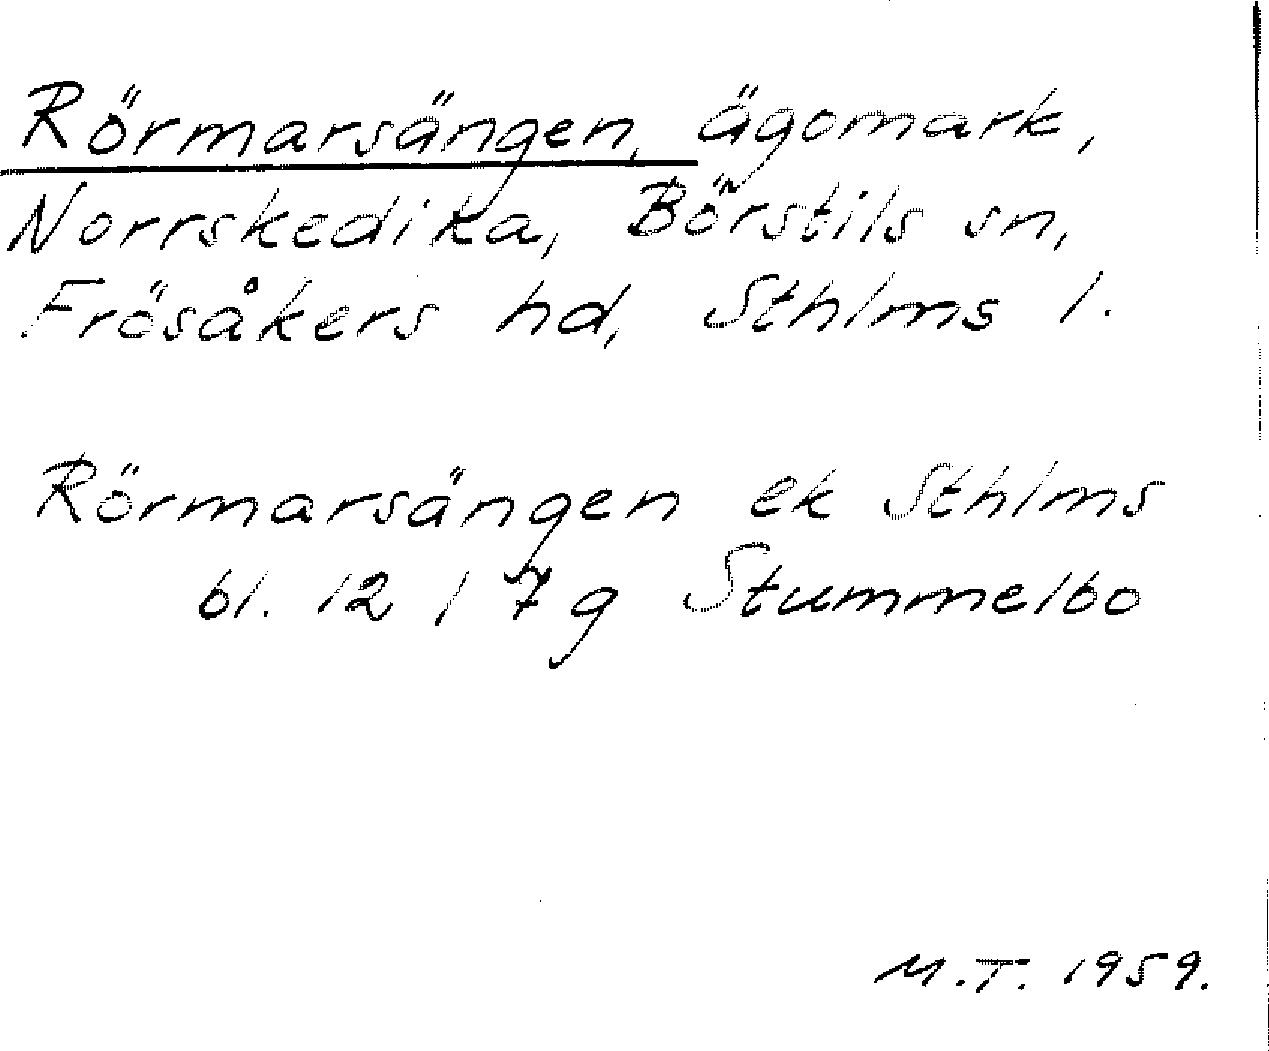 Rörmarsängen, ägomark,
Norrskedika, Börstils sn,
Frösåkers hd, Sthlms l.
Rörmarsängen ek Sthlms
bl. 12 I 7g Stummelbo
M.T. 1959.